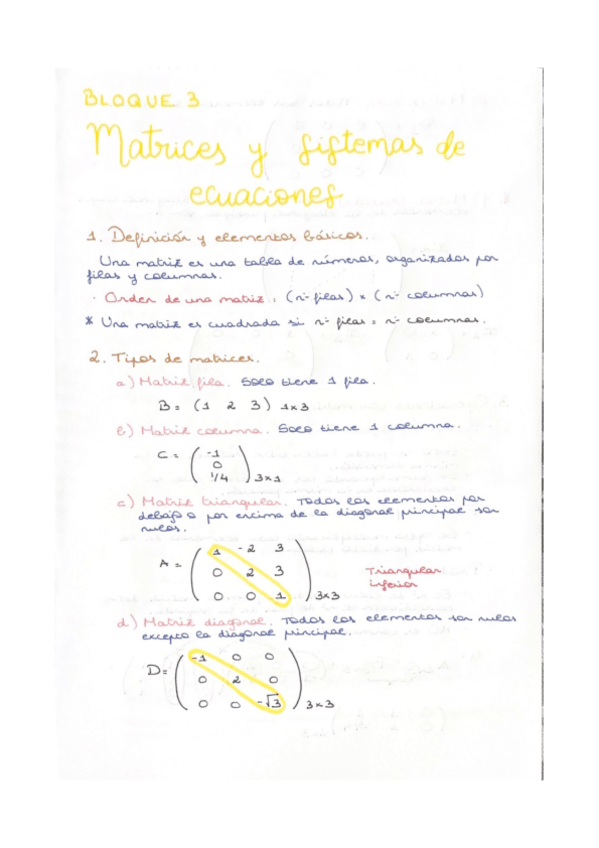 BLOQUE 3
Matrices y sistemas de
ecuaciones
1. Definición y elementos básicos.
Una matriz es una tabla de números, organizados por
filas y columnas.
· Orden de una matriz: (nº filas) × (nº columnas)
* Una matriz es cuadrada si nº filas = nº columnas.
2. Tipos de matrices.
a) Matriz fila. Solo tiene 1 fila.
B = (1 2 3) 1×3
b) Matriz columna. Solo tiene 1 columna.
C = ( -1
0
1/4 ) 3×1
c) Matriz triangular. Todos los elementos por
debajo o por encima de la diagonal principal son
nulos.
A = ( 1 -2 3
0 2 3
0 0 1 ) 3×3
Triangular
inferior
d) Matriz diagonal. Todos los elementos son nulos
excepto la diagonal principal.
D = ( -1 0 0
0 2 0
0 0 -√3 ) 3×3